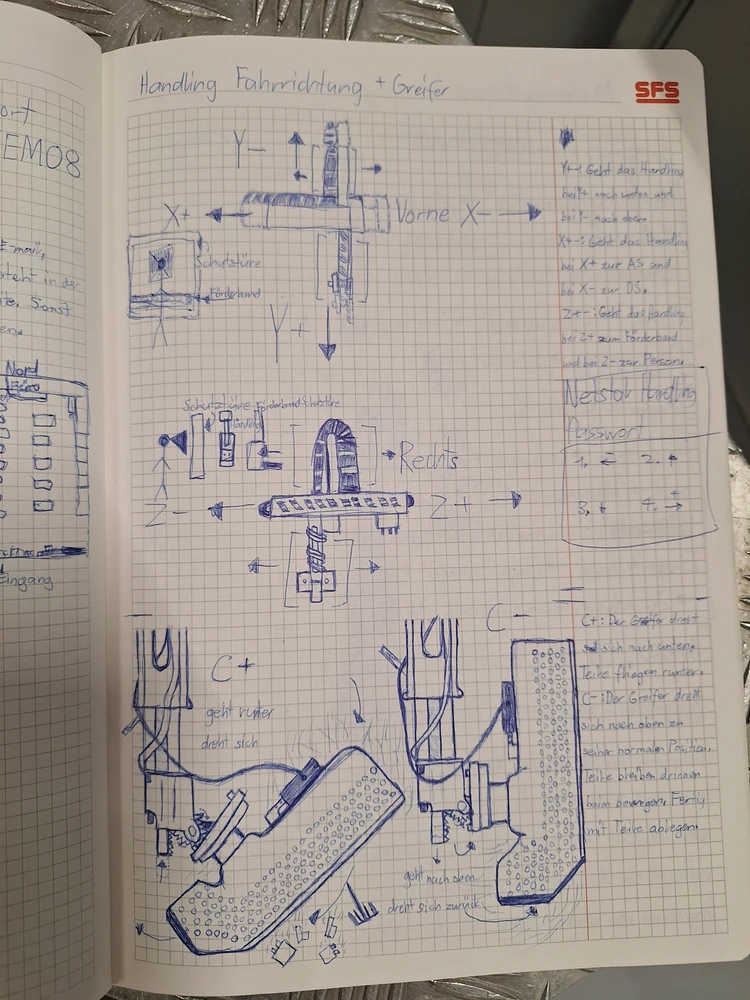 Handling Fahrrichtung + Greifer
SFS
EM08
E-mail,
steht in der
Sonst
Nord
Büro
Eingang
Y-
X+
Vorne X-
Schutztüre
Förderband
Y+
Y+-: Geht das Handling
bei Y+ nach unten und
bei Y- nach oben.
X+-: Geht das Handling
bei X+ zur AS und
bei X- zur DS.
Z+-: Geht das Handling
bei Z+ zum Förderband
und bei Z- zur Person.
Netstal Handling
Passwort
1. ←
2. ↑
3. +
4. →
Schutztüre Förderband Schutztüre
Händling
Rechts
Z-
Z+
C+
geht runter
dreht sich
C-
geht nach oben
dreht sich zurück
C+: Der Greifer dreht
sich nach unten.
Teile fliegen runter.
C-: Der Greifer dreht
sich nach oben zu
seiner normalen Position.
Teile bleiben drinnen
beim bewegen. Fertig
mit Teile ablegen.